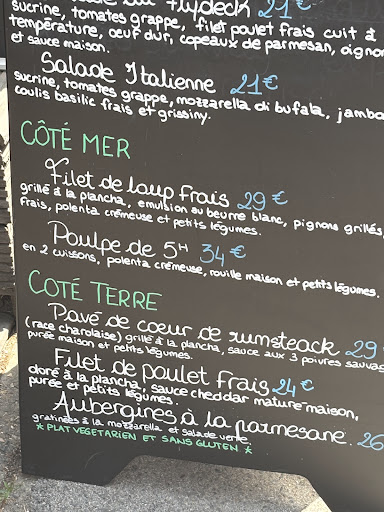 du Flydeck 21€
sucrine, tomates grappe, filet poulet frais cuit à
température, oeuf dur, copeaux de parmesan, oignon
et sauce maison.
Salade Italienne 21€
sucrine, tomates grappe, mozzarella di bufala, jambo
coulis basilic frais et grissiny.
CÔTÉ MER
Filet de loup frais 29€
grillé à la plancha, emulsion au beurre blanc, pignons grillés,
frais, polenta crémeuse et petits légumes.
Poulpe de 5H 34€
en 2 cuissons, polenta crémeuse, rouille maison et petits légumes.
COTÉ TERRE
Pavé de coeur de rumsteack 29
(race charolaise) grillé à la plancha, sauce aux 3 poivres sauvag
purée maison et petits légumes.
Filet de poulet frais 24€
doré à la plancha, sauce cheddar mature maison,
purée et petits légumes.
Aubergines à la parmesane. 26
gratinées à la mozzarella et salade verte.
* PLAT VEGETARIEN ET SANS GLUTEN *